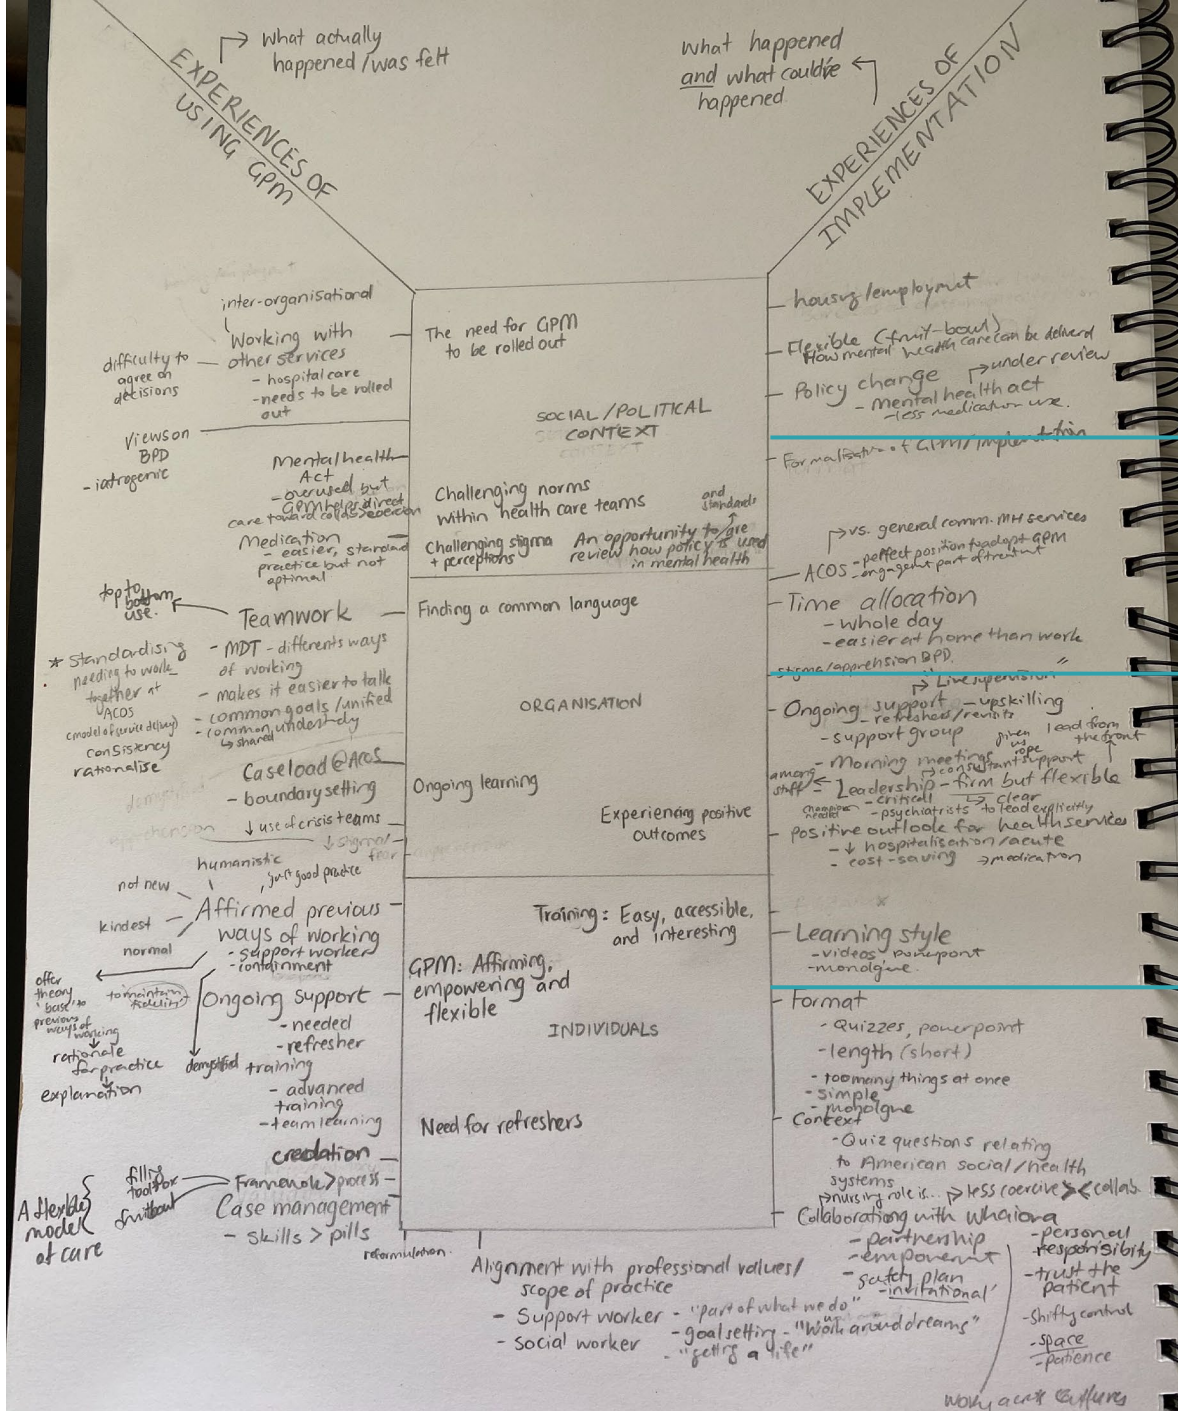 What actually
happened/was felt
EXPERIENCES OF
USING GPM
What happened
and what could've
happened.
EXPERIENCES OF
IMPLEMENTATION
inter-organisational
Working with
other services
- hospital care
- needs to be rolled
out
difficulty to
agree on
decisions
Views on
BPD
- iatrogenic
Mental health
Act
- overused but
GPM helps direct
care toward collab > coercion
Medication
- easier, standard
practice but not
optimal
top to
bottom
use.
Teamwork
- MDT - differents ways
of working
- makes it easier to talk
- common goals/unified
- common understandy
↳ shared
* Standardising
needing to work
together at
ACOS
(model of service delivery)
consistency
rationalise
Caseload @ ACOS
- boundary setting
↓ use of crisis teams
↓ stigma/
fear
humanistic
just good practice
not new
kindest
normal
Affirmed previous
ways of working
- support worker
- containment
offer
theory
'base' to
previous
ways of
working
rationale
for practice
explanation
to maintain
fidelity
Ongoing support
- needed
- refresher
training
demystified
- advanced
training
- team learning
credation
Framework > process
Case management
- skills > pills
filling
toolbox
fruitbowl
A flexible
model
of care
reformulation.
The need for GPM
to be rolled out
SOCIAL/POLITICAL
CONTEXT
Challenging norms
within health care teams
and
standards
Challenging stigma
+ perceptions
An opportunity to
review how policy is used
in mental health
Finding a common language
ORGANISATION
Ongoing learning
Experiencing positive
outcomes
Training: Easy, accessible,
and interesting
GPM: Affirming,
empowering and
flexible
INDIVIDUALS
Need for refreshers
housing/employment
Flexible (fruit-bowl)
How mental health care can be deliverd
Policy change
under review
- Mental health act
- less medication use.
Formalisation of GPM/implementation
vs. general comm. MH services
ACOS - perfect position to adopt GPM
- engagement part of treatment
Time allocation
- whole day
- easier at home than work
stigma/apprehension BPD.
Live supervision
Ongoing support - upskilling
- refreshers/revisits
- support group
- Morning meetings
given
us
rope
lead from
the front
consultant support
among
staff
Leadership - firm but flexible
- critical
clear
champion
needed
- psychiatrists to lead explicitly
Positive outlook for health services
- ↓ hospitalisation/acute
- cost-saving → medication
Learning style
- videos powerpoint
- monolgue.
Format
- Quizzes, powerpoint
- length (short)
- too many things at once
- simple
- monolgue
Context
- Quiz questions relating
to American social/health
systems
nursing role is...
less coercive >< collab.
Collaborating with whaiora
- partnership
- empowerment
- safety plan
- invitational
- personal
responsibility
- trust the
patient
- Shifty control
- space
- patience
work across cultures
Alignment with professional values/
scope of practice
- Support worker - "part of what we do"
- Social worker
- goal setting - "work around dreams"
- "getting a life"